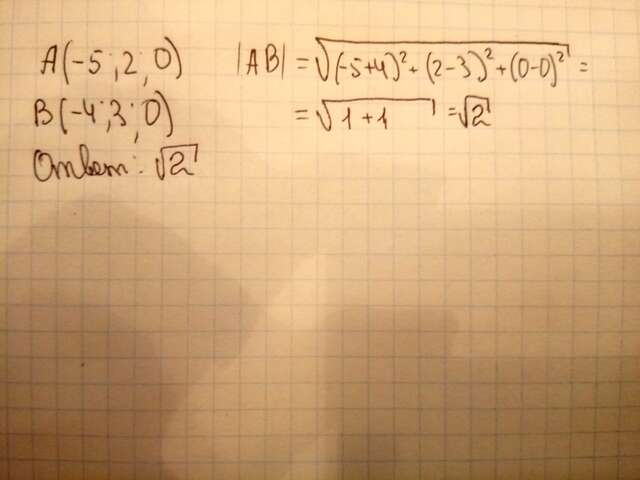 A(-5;2;0) |AB| = √(-5+4)²+(2-3)²+(0-0)² =
B(-4;3;0) = √1+1 = √2
Ответ: √2